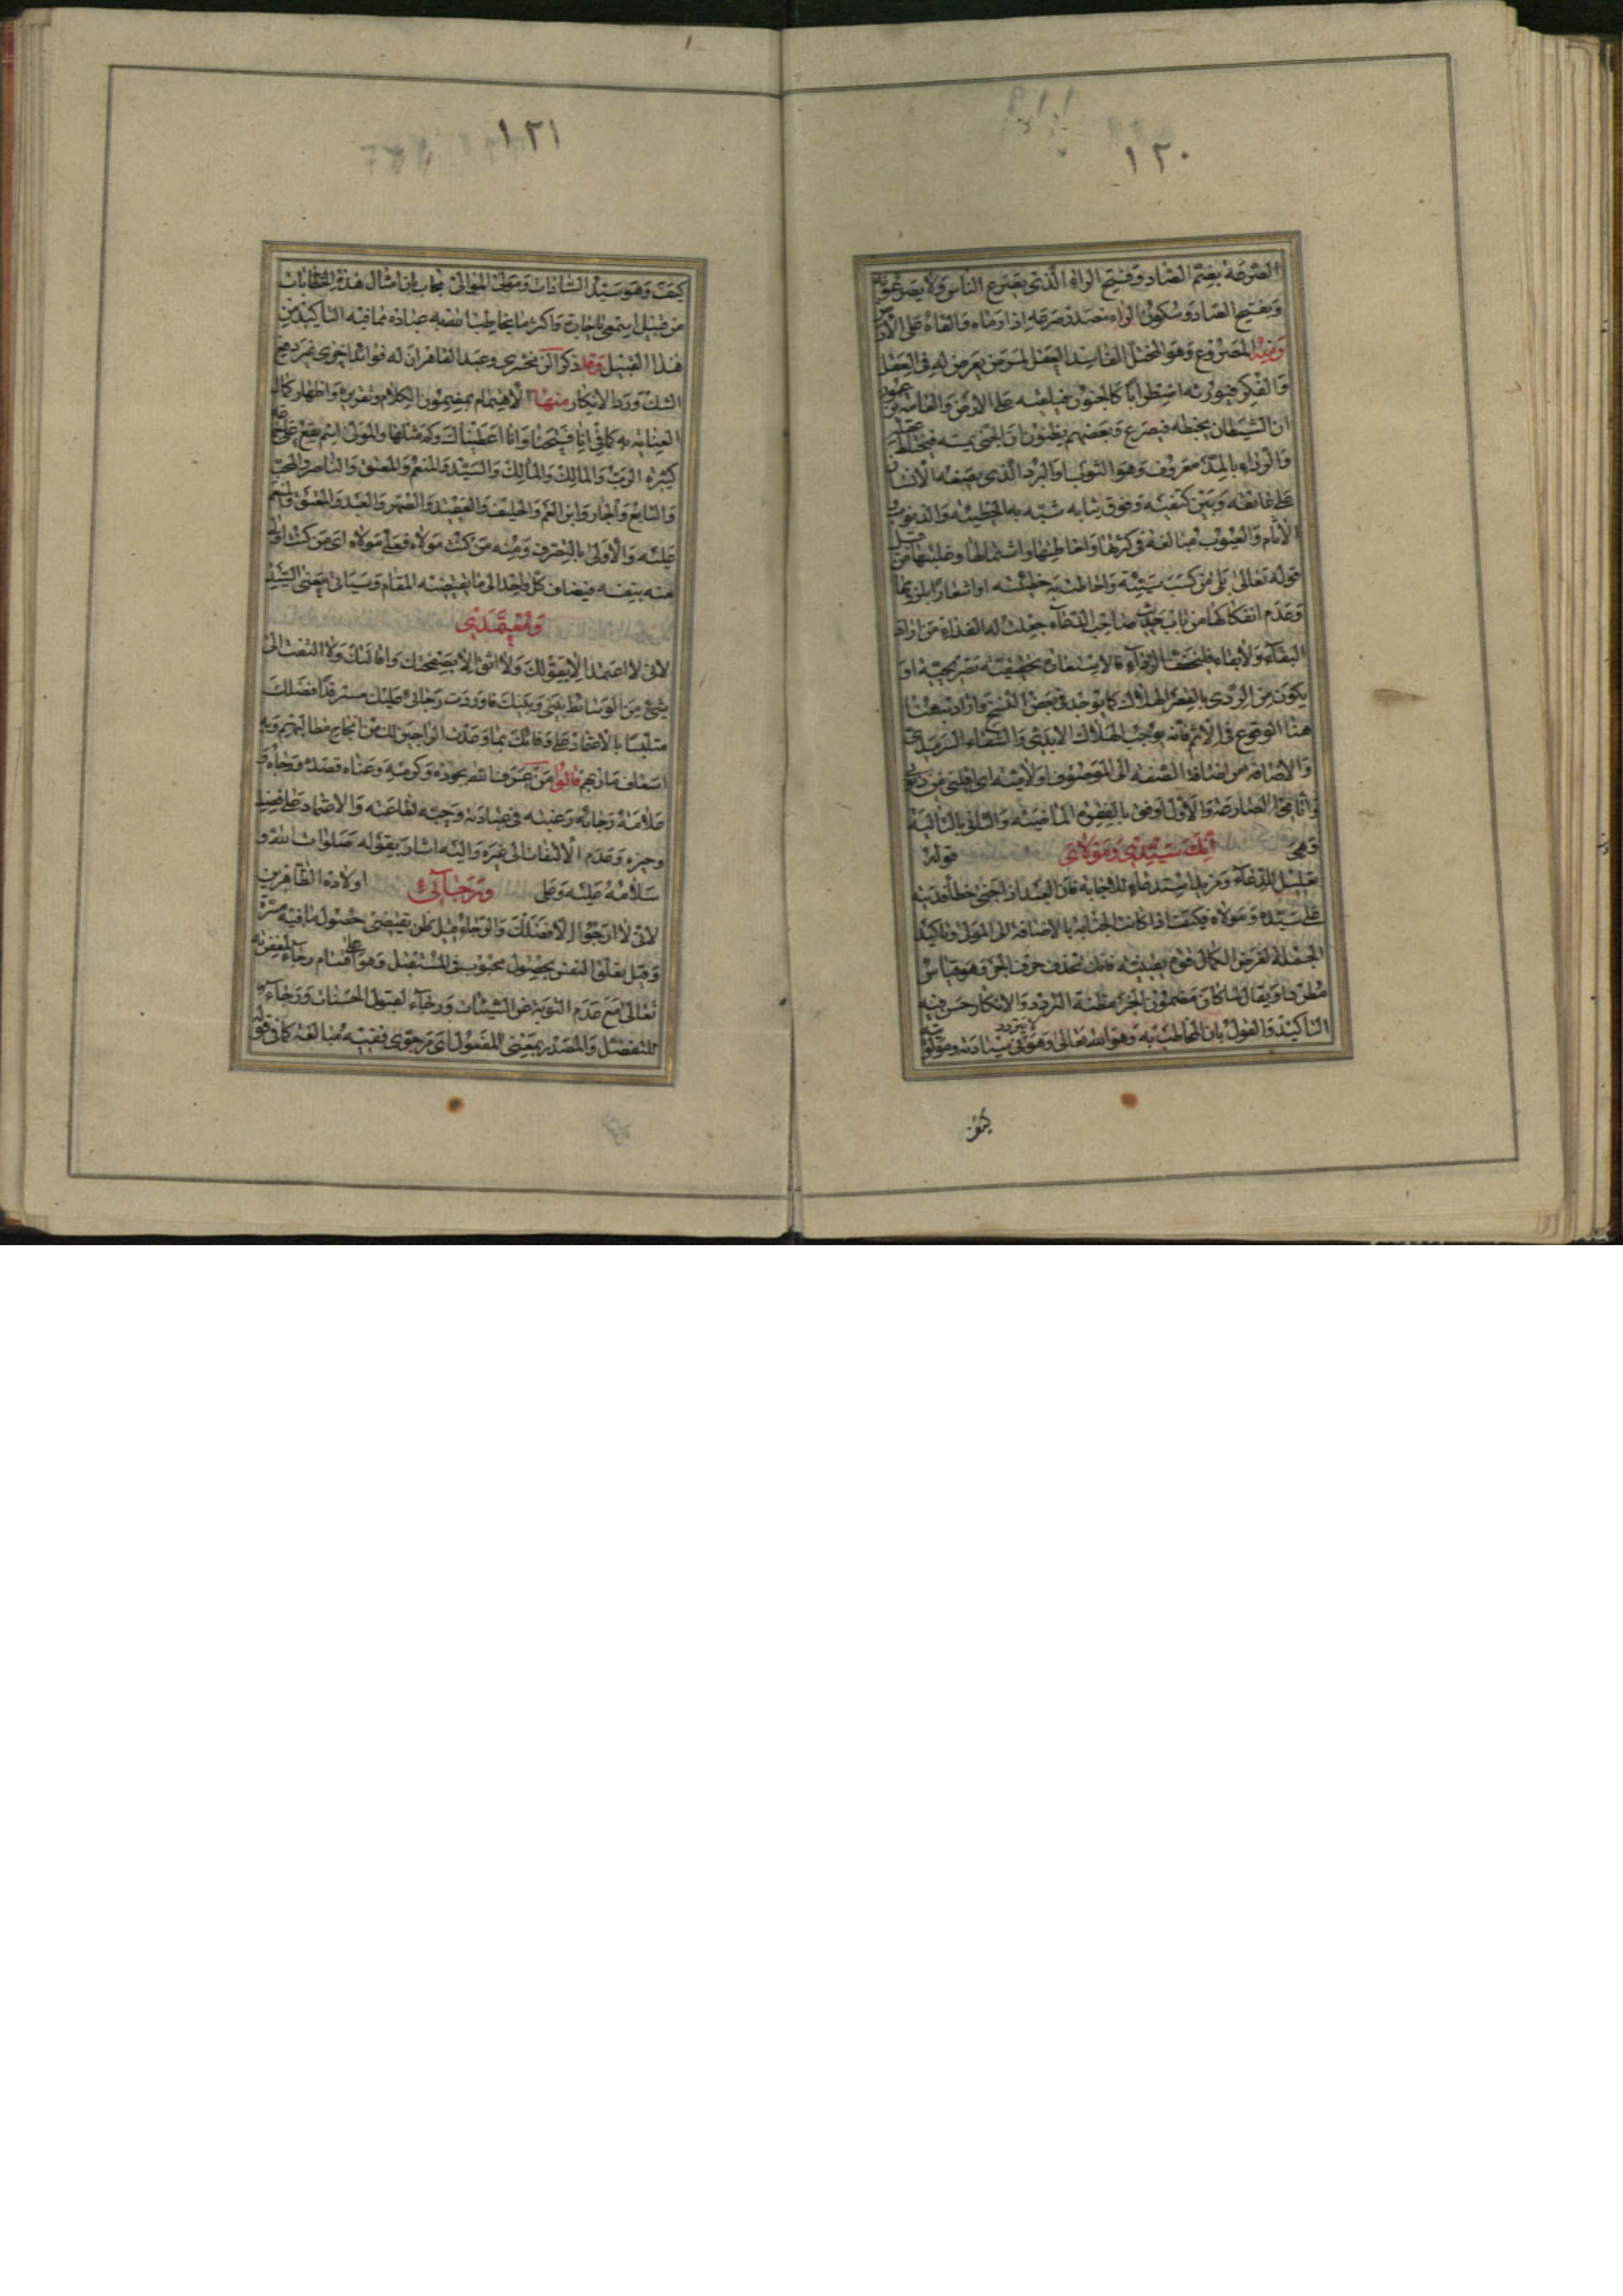 ١٢٠
الصرعة بضم الصاد وفتح الراء الذى يصرع الناس ولا يصرعونه
وبفتح الصاد وسكون الراء مصدر صرعه اذا رماه والقاه على الارض
ومنه المصروع وهو المختل الفاسد العقل لمرض يعرض له فى العقل
والفكر فيورثه اضطرابا كالجنون فيلقيه على الارض والعامة
ان الشيطان يخبطه فيصرع وبعضهم يظنون ان الجنى يمسه فيختلط عقله
والرداء بالمد معروف وهو الثوب او البرد الذى يضعه الانسان
على عاتقه وبين كتفيه وفوق ثيابه شبه به الخطيئة والذنوب
الاثام والعيوب مبالغة فى كثرتها واحاطتها واشتمالها وغلبتها من قبيل
قوله تعالى بلى من كسب سيئة واحاطت به خطيئته او اشعارا بلزومها
وعدم انفكاكها من صاحب الدعاء جعلت له الفداء من اراد
البقاء ولا بقاء فليخفف الرداء فالاستعارة تصريحية او
يكون من الردى بالقصر الهلاك كما يوجد فى بعض النسخ واراد هنا
هذا الوقوع فى الاثم فانه يوجب الهلاك الابدى والشقاء السرمدى
والاضافة من اضافة الصفة الى الموصوف او لامية اى اقلنى من
والاول اوفق بالفقرة الماضية والثانى بالتالية
وهى انك سيدى ومولاى قوله
تعليل للدعاء ومزيد استدعاء للاجابة فان العبد اذا جنى خطأ فديته
على سيده ومولاه فكيف اذا كانت الجناية بالاضافة الى المولى وتاكيد
الجملة لغرض الكمال
مطردا ويقال لما كان مضمون الخبر مظنة التردد والانكار حسن فيه
التاكيد والقول بان المخاطب به وهو الله تعالى وهو لا يتردد فى سيادته ومولويته
كيف
١٢١
كيف وهو سيد السادات ومولى الموالى يجاب بان امثال هذه الخطابات
من قبيل اسمعى يا جارة واكثر ما يخاطبنا الله به عباده فما فيه التاكيد من
هذا القبيل وقد ذكر الزمخشرى وعبد القاهر ان له فوائد اخرى غير دفع
الشك ورد الانكار منها الاهتمام بمضمون الكلام وتقريره واظهار كمال
العناية به كما فى انا فتحنا وانا اعطيناك وكم مثلها والمولى اسم يقع على جماعة
كثيرة الرب والمالك والسيد والمنعم والمعتق والناصر والمحب
والتابع والجار وابن العم والحليف والعقيد والصهر والعبد والمعتق والمنعم
عليه والاولى بالتصرف ومنه من كنت مولاه فعلى مولاه اى من كنت اولى
منه بنفسه فيضاف كل واحد الى ما يقتضيه المقام وسياتى معنى السيد
ومعتمدى
لانى لا اعتمد الا بعفوك ولا اثق الا بصفحك واقالتك ولا التفت الى
شئ من الوسائط بينى وبينك فاوردت رجائى عليك مسترفدا فضلك
متلبسا بالاعتماد على وفائك بما وعدت الراجين لك من انجاح مطالبهم و
اسعاف ماربهم قالوا من عرف الله بجوده وكرمه وغناه قصده ورجاه و
علامة رجائه رغبته فى عبادته وحبه لطاعته والاعتماد على فضله
وخيره وعدم الالتفات الى غيره واليه اشار بقوله صلوات الله و
سلامه عليه وعلى ورجائى اولاده الطاهرين
لانى لا ارجو الا فضلك والرجاء قيل ظن يقتضى حصول ما فيه مسرة
وقيل تعلق النفس بحصول محبوب فى المستقبل وهو على اقسام رجاء لمغفرته
تعالى مع عدم التوبة عن السيئات ورجاء لقبول الحسنات ورجاء
للتفضل والمصدر بمعنى المفعول اى مرجوى ففيه مبالغة كما فى قوله